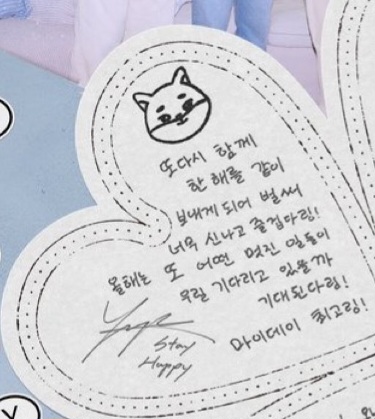 또다시 함께
한 해를 같이
보내게 되어 벌써
너무 신나고 즐겁다링!
올해는 또 어떤 멋진 일들이
우릴 기다리고 있을까
기대된다링!
마이데이 최고링!
Stay
Happy